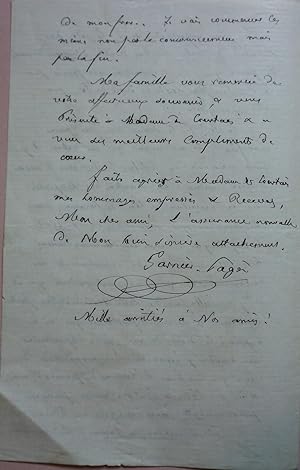 de mon frère. Je vais commencer les
miens non par le commencement mais
par la fin.
Ma famille vous remercie de
votre affectueux souvenir, & vous
présente à Madame de Courtais &
vous ses meilleurs compliments de
cœur.
faites agréer à Madame de Courtais
mes hommages empressés & Recevez,
Mon cher ami, l'assurance nouvelle
de Mon bien sincère attachement.
Garnier-Pagès
Mille amitiés à Nos amis!